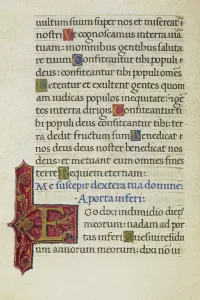 vultum suum super nos et misereat
nostri Ut cognoscamus in terra uia
tuam: in omnibus gentibus saluta
re tuum Confiteantur tibi populi
deus: confiteantur tibi populi omēs
Letentur et exultent gentes quoni
am iudicas populos in equitate: ⁊ gē
tes in terra dirigis Confiteantur ti
bi populi deus confiteantur tibi: ter
ra dedit fructum suum Benedicat n
os deus deus noster benedicat nos
deus: et metuant eum omnes fines
terre Requiem eternam:
Me suscepit dextera tua domine:
A porta inferi:
Ego dixi in dimidio dierū
meorum: uadam ad por
tas inferi Quesiui residuū
annorum meorum: dixi non ui